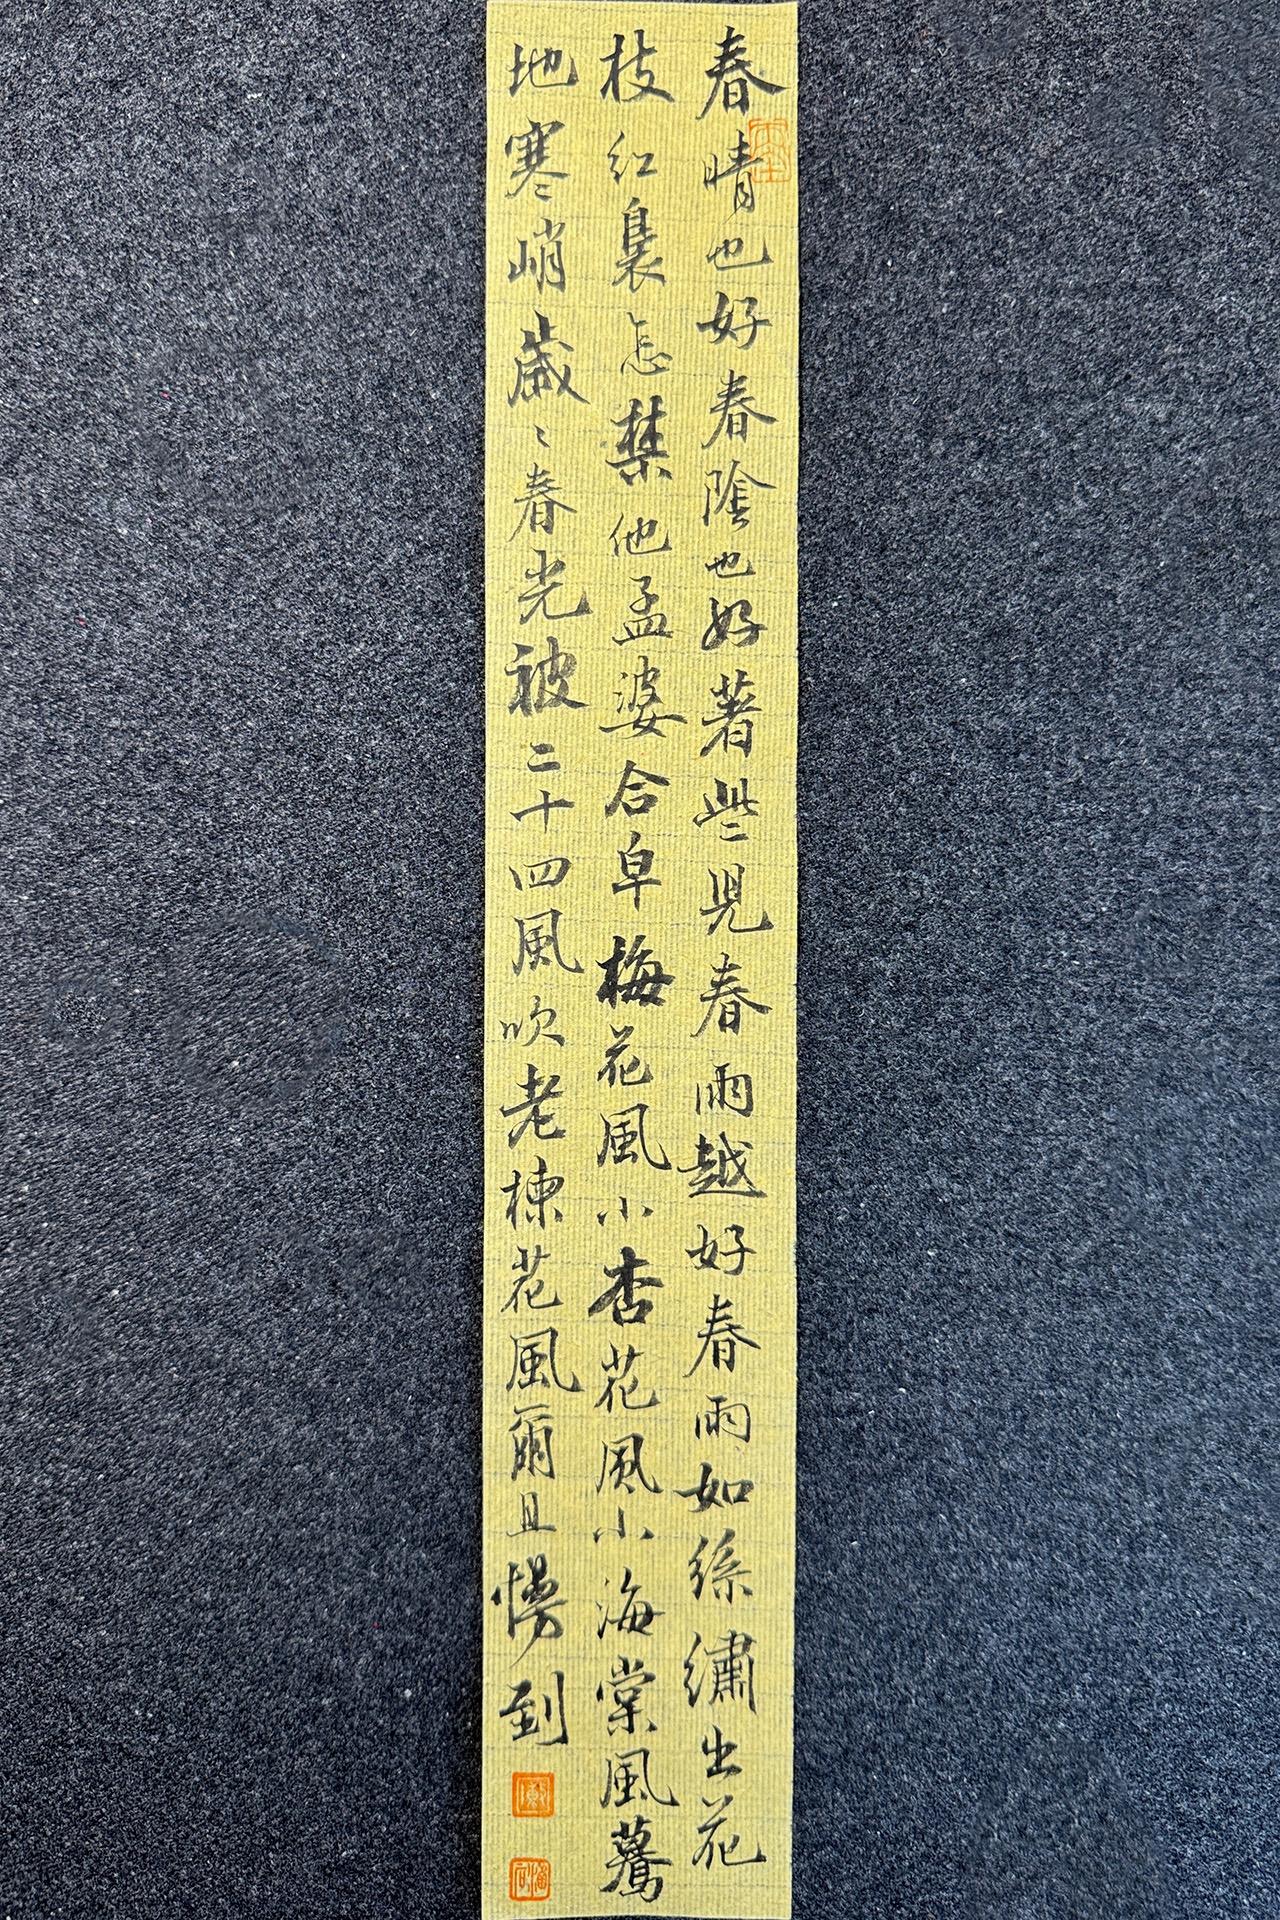 春晴也好春陰也好著些兒春雨越好春雨如絲繡出花
枝紅裊怎禁他孟婆合皁梅花風小杏花風小海棠風驀
地寒峭歲〻春光被二十四風吹老楝花風爾且慢到